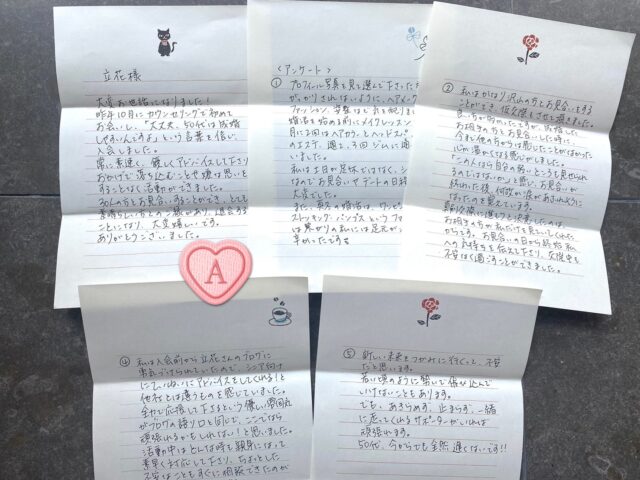 立花様
大変お世話になりました!
昨年10月にカウンセリングで初めて
お会いし、"大丈夫、50代は成婚
しやすいんですよ"という言葉を信じ
入会しました。
常に素速く、優しくアドバイスして下さり
おかげで落ち込むことや嫌な思いを
することなく活動ができました。
30人の方とお見合いすることができ、とても
素晴らしい方とのご縁があり、退会する
ことになり、大変嬉しいです。
ありがとうございました。
A
<アンケート>
①
プロフィール写真を見て選んで下さった方が
がっかりされないように、ヘアメイク
ファッション
婚活を始める前にメイクレッスン
月に3回はヘアカラーとヘッドスパ
のエステ、週に3回ジムに通
いました。
私は土日が定休ではなく、シ
なのでお見合いやデートの日程
大変でした。
また、努力の婚活は、ワンピ
ストッキング・パンプスという
は寒がりの私には足元が
辛かったです
②
私はかなり沢山の方とお見合いをする
ことができ、
良い方が
お相手の方とお見合いした時に、
今まで他の方からは感じたことがなかった
心が
この人なら自分の弱いところも見せられ
るのではないか、と思い、お見合いが
終わった後、何故か涙があふれそうに
なったのを覚えています。
真剣交際に進もうと決意したのは
お相手の方が私だけを見ていてくれた
からです。お見合いの日から終始 私
への気持ちを伝えて下さり、交際中も
不安なく過ごすことができました。
④
私は入会前から立花さんのブログに
元気づけられていたので、シニア向け
にていねいにアドバイスをしてくれる!と
他社とは違うものを感じていました。
全力で応援して下さるという優しい雰囲気
がブログの語り口と同じで、ここでなら
頑張れるかもしれない!と思いました。
活動中はどんな時も親身になって
素早く対応して下さり、ちょっとした
不安なこともすぐに相談できたのが
⑤
新しい未来をつかみに行くって、不安
だと思います。
若い頃のように勢いで飛び込んで
いけないこともあります。
でも、あきらめず、止まらず、一緒
に走ってくれるサポーターがいれば
頑張れます。
50代、今からでも全然遅くはないです!!